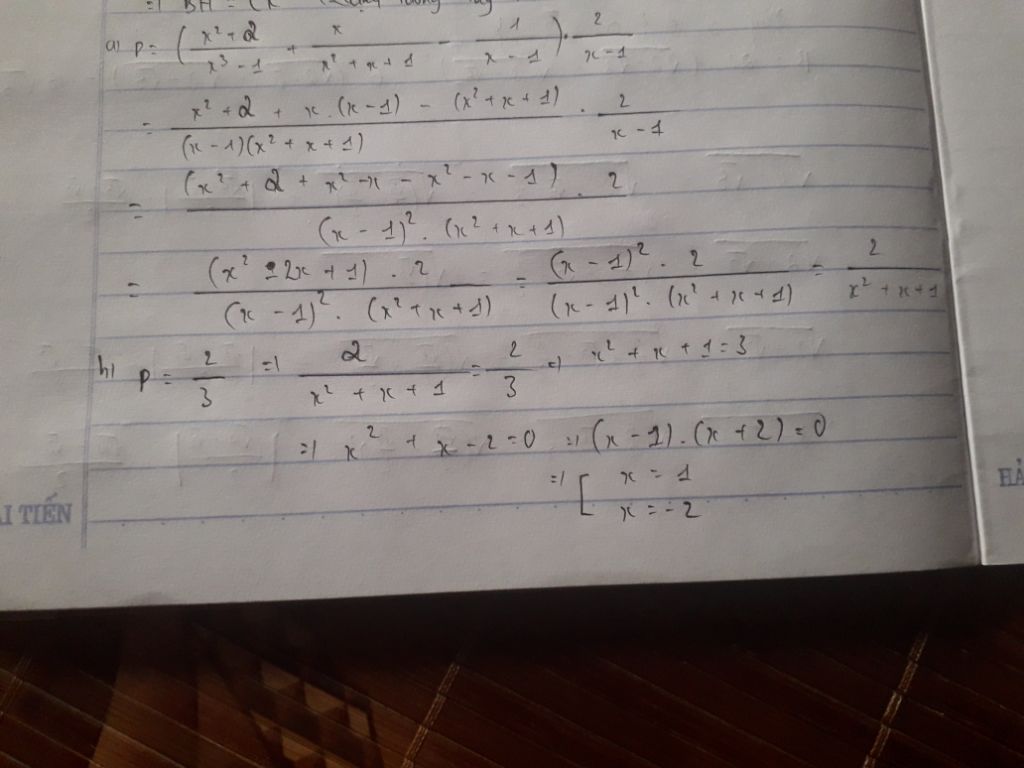 =) BH = CK
a) P = (\frac{x² + 2}{x³ - 1} + \frac{x}{x² + x + 1} - \frac{1}{x - 1}) . \frac{2}{x - 1}
= \frac{x² + 2 + x.(x - 1) - (x² + x + 1)}{(x - 1)(x² + x + 1)} . \frac{2}{x - 1}
= \frac{(x² + 2 + x² - x - x² - x - 1) . 2}{(x - 1)² . (x² + x + 1)}
= \frac{(x² - 2x + 1) . 2}{(x - 1)² . (x² + x + 1)} = \frac{(x - 1)² . 2}{(x - 1)² . (x² + x + 1)} = \frac{2}{x² + x + 1}
b) P = \frac{2}{3} =) \frac{2}{x² + x + 1} = \frac{2}{3} =) x² + x + 1 = 3
=) x² + x - 2 = 0 =) (x - 1).(x + 2) = 0
=) [ x = 1
x = -2
ẢI TIẾN
HẢ